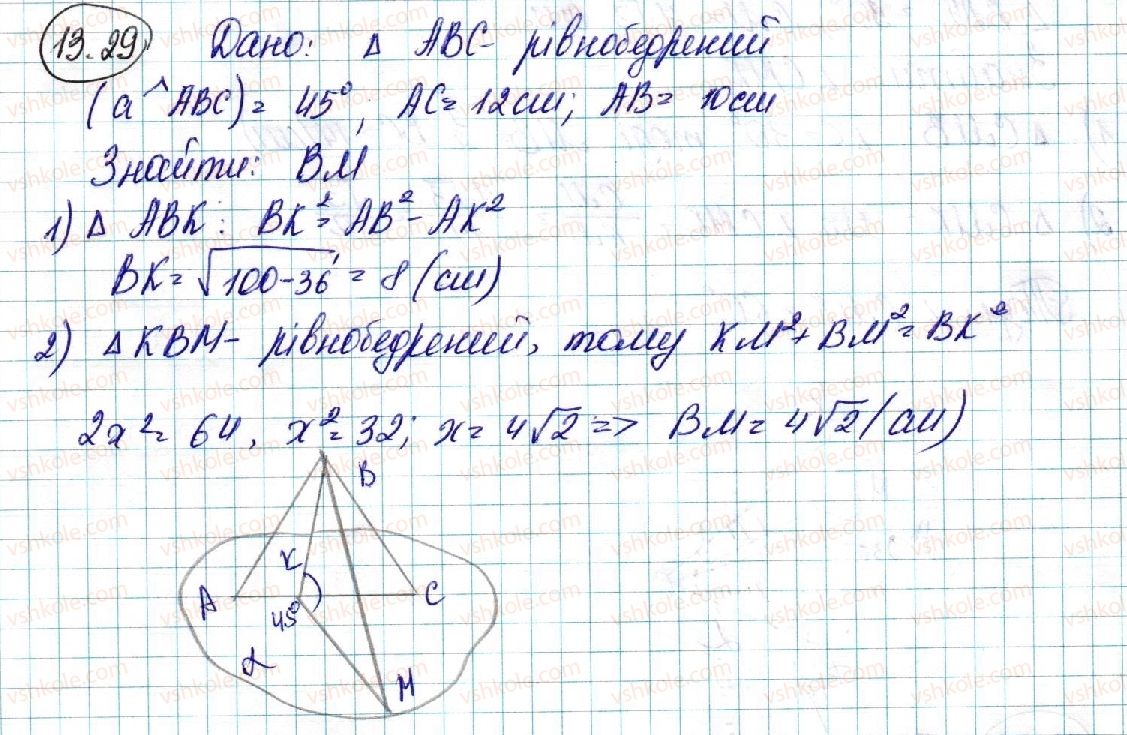 13.29 Дано: Δ ABC - рівнобедрений
(a^ABC) = 45°; AC = 12 см; AB = 10 см
Знайти: BM
1) Δ ABK: BK² = AB² - AK²
BK = √100-36 = 8 (см)
2) Δ KBM - рівнобедрений, тому KM² + BM² = BK²
2x² = 64, x² = 32; x = 4√2 => BM = 4√2 (см)
B
K
A
C
45°
α
M
vshkole.com